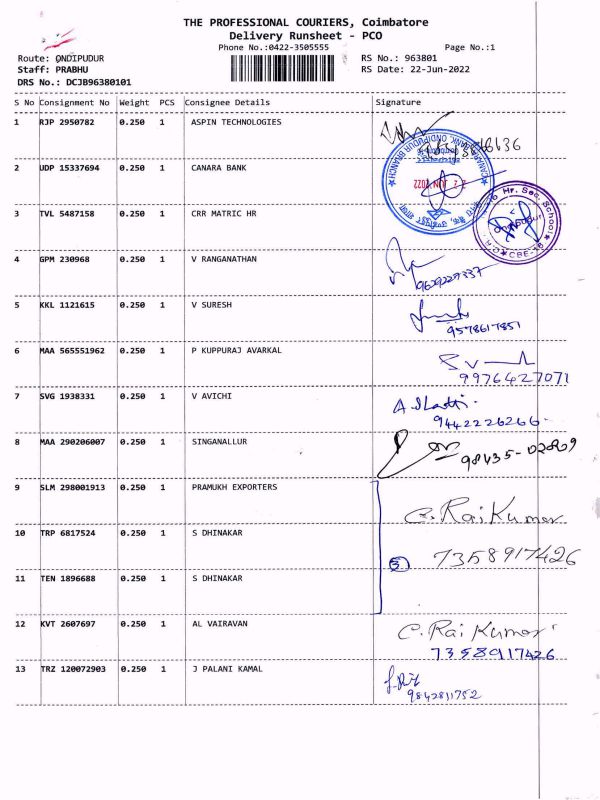 THE PROFESSIONAL COURIERS, Coimbatore
Delivery Runsheet - PCO
Phone No.:0422-3505555 Page No.:1
Route: ONDIPUDUR RS No.: 963801
Staff: PRABHU RS Date: 22-Jun-2022
DRS No.: DCJB96380101
S No Consignment No Weight PCS Consignee Details Signature
1 RJP 2950782 0.250 1 ASPIN TECHNOLOGIES
2 UDP 15337694 0.250 1 CANARA BANK
3 TVL 5487158 0.250 1 CRR MATRIC HR
4 GPM 230968 0.250 1 V RANGANATHAN
9629229337
5 KKL 1121615 0.250 1 V SURESH
9578617851
6 MAA 565551962 0.250 1 P KUPPURAJ AVARKAL
9976427071
7 SVG 1938331 0.250 1 V AVICHI
9442226266
8 MAA 290206007 0.250 1 SINGANALLUR
98435-02809
9 SLM 298001913 0.250 1 PRAMUKH EXPORTERS
C. Raj Kumar
10 TRP 6817524 0.250 1 S DHINAKAR
7358917426
11 TEN 1896688 0.250 1 S DHINAKAR
12 KVT 2607697 0.250 1 AL VAIRAVAN
C. Raj Kumar
7358917426
13 TRZ 120072903 0.250 1 J PALANI KAMAL
9842811752